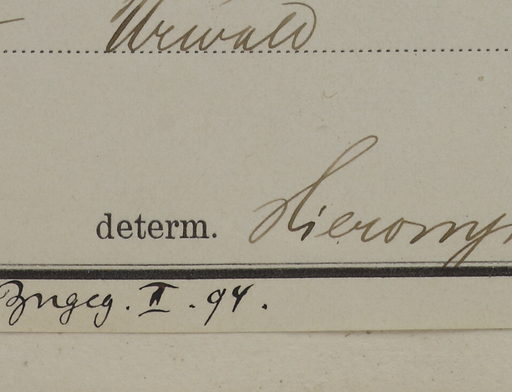 Urwald
determ. Hierony
Zugeg. II. 94.